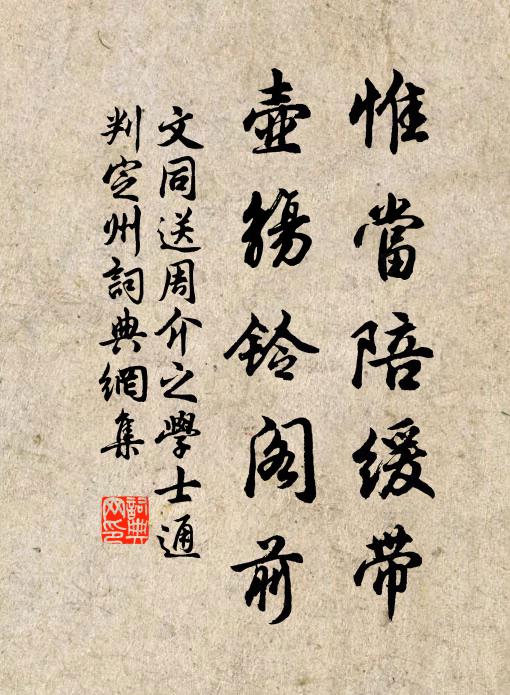 惟當陪緩带
壺觴鈴阁前
文同送周介之學士通
判定州詞典網集
詞典
网印